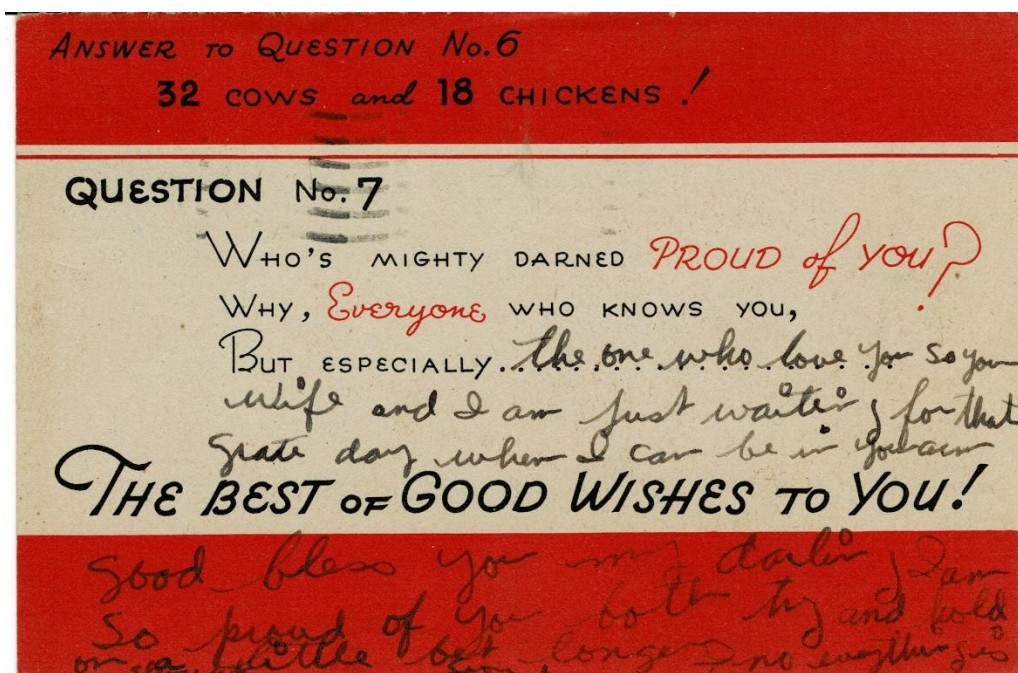 ANSWER TO QUESTION No. 6
32 COWS and 18 CHICKENS!
QUESTION No. 7
WHO'S MIGHTY DARNED PROUD of YOU?
WHY, Everyone WHO KNOWS YOU,
BUT ESPECIALLY... the one who love you so your
wife and I am just waiting for that
grate day when I can be in your arm
THE BEST OF GOOD WISHES TO YOU!
good bless you my darling I am
so proud of you both try and hold
on a little bet longer I no everything is